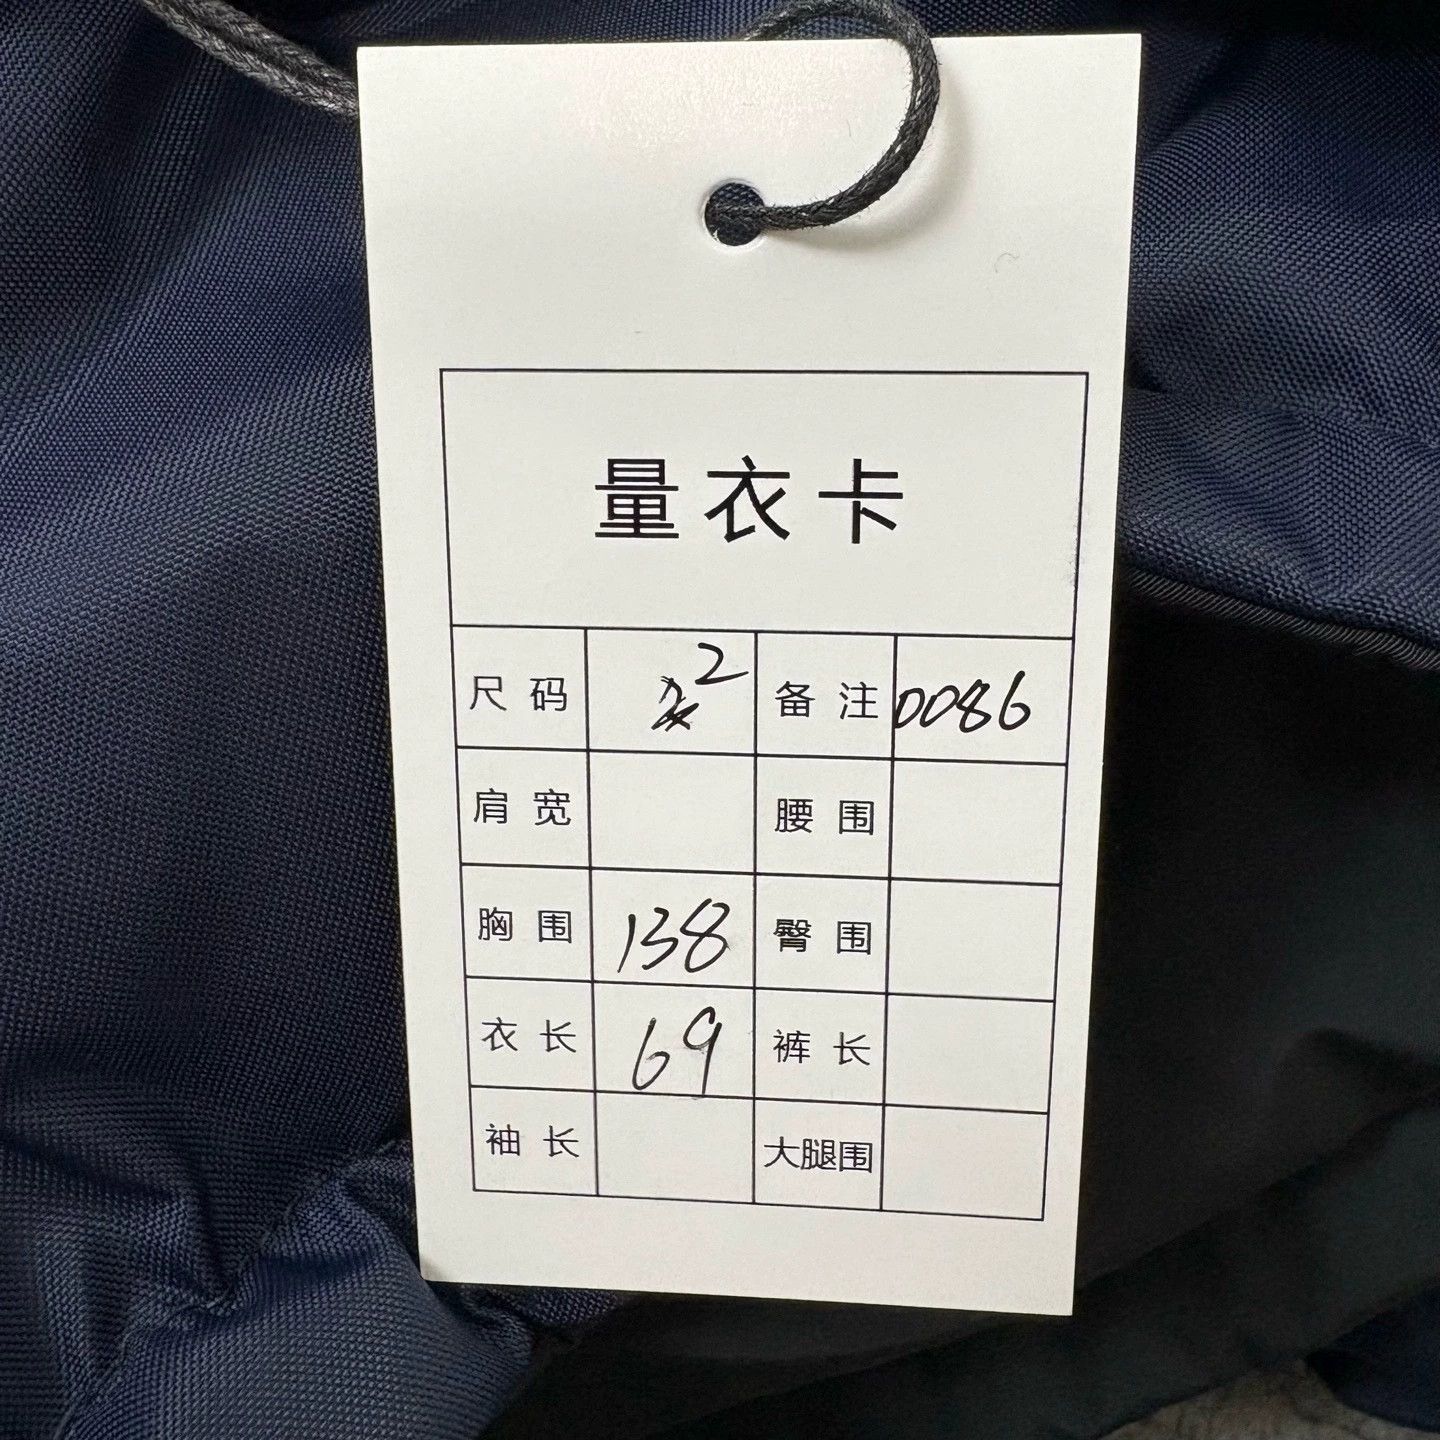 量衣卡
尺码 2 备注 0086
肩宽 腰围
胸围 138 臀围
衣长 69 裤长
袖长 大腿围